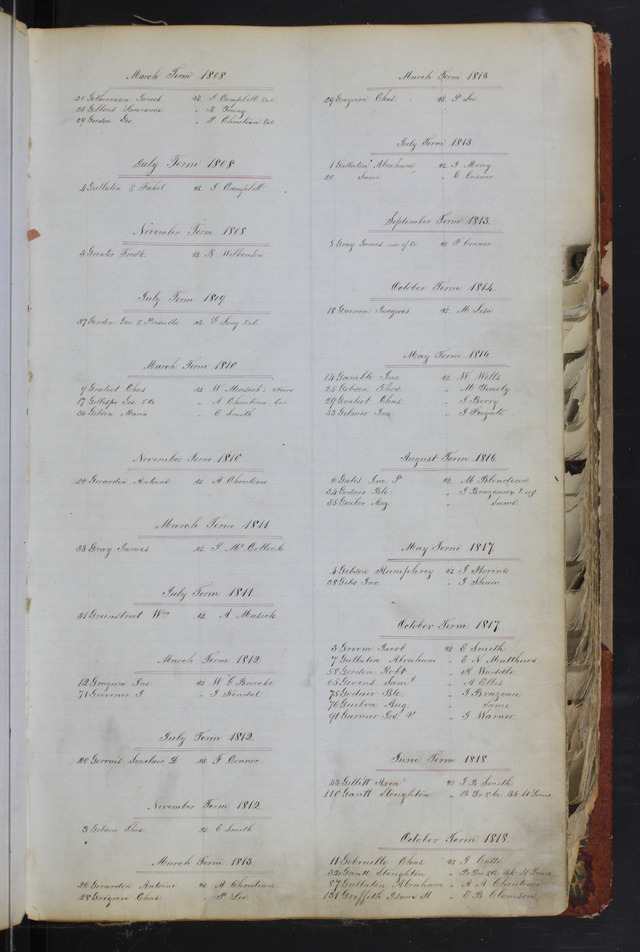 March Term 1808
vs. J Campbell Exr
28 Gibbons Lawrence " R Young
29 Gordon Geo " P Chouteau Exr
July Term 1808
4 Gallatin & Tabet vs. J Campbell
November Term 1808
3 Greater Fredk vs. B Wilkinson
July Term 1809
37 Gordon Geo & Priscilla vs. E Long Exr
March Term 1810
9 Gratiot Chas vs. W
17 Gillespi Geo & Co " A Chouteau
36 Gibson Maria " C Smith
November Term 1810
26 Girarden Antoine vs. A Chouteau
March Term 1811
33 Gray James vs. J McCollock
July Term 1811
31 Greenstreet Wm vs. A Musick
March Term 1812
12 Grayson Jno vs. W C Burche
71 Grivener J " J Kendal
July Term 1812
20 Gervais Sinclair D vs. J Connor
November Term 1812
3 Gibson Thos. vs. C Smith
March Term 1813
26 Girarden Antoine vs. A Chouteau
28 Gregoire Chas " P Lee
March Term 1813
29 Gregoire Chas. vs. P Lee
July Term 1813
1 Gallatin Abraham vs. J Merry
20 Same " C
September Term 1813
8 Gray James vs. P Connor
October Term 1814
18 Guenin Jacques vs. M Lisa
May Term 1816
14 Gamble Jno vs. W Wells
25 Gibson Thos. " M
29 Gratiot Chas. " J Berry
43 Gilmer Jno " J Fugate
August Term 1816
6 Gates Jno P vs. M Blondeau
34 Godair Bte. " J Brazeaux
35 Guibor Aug. " Same
May Term 1817
4 Gibson Humphrey vs. J
38 Gibs Jno " J Shaw
October Term 1817
3 Groom Jacob vs. C Smith
7 Gallatin Abraham " E N Matthews
58 Gordon Robt " K Waddle
65 Givens Saml " A Ellis
75 Godair Bte. " J Brazeau
76 Guibor Aug. " Same
91 Garnier Jos. V " G Warner
June Term 1818
43 Gillett Aron vs. J B Smith
110 Gantt Stoughton " P Dr & Co Bk St Louis
October Term 1818
11 Gobrielle Chas vs. J Cotte
32 Gantt Stoughton " P Dr & Co Bk St Louis
87 Gallatin Abraham " A A Chouteau
131 Griffith Isaac H " E B Clemson